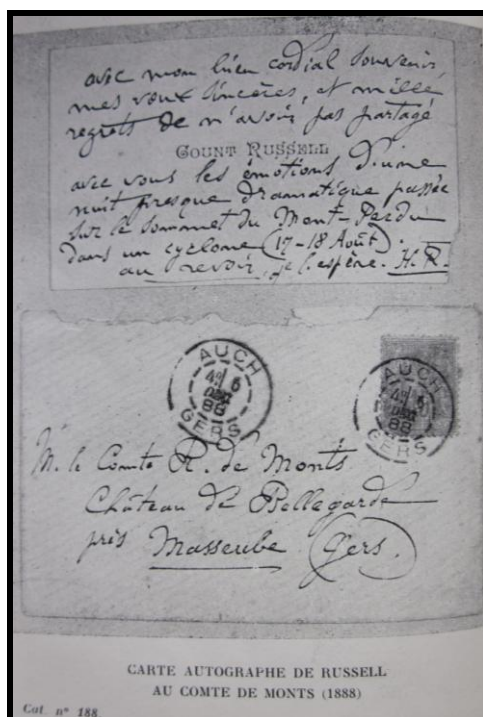 avec mon bien cordial souvenir,
mes vœux sincères, et mille
regrets de n'avoir pas partagé
COUNT RUSSELL
avec vous les émotions d'une
nuit presque dramatique passée
sur le sommet du Mont-Perdu
dans un cyclone (17-18 Août).
au revoir, je l'espère. H. R.
AUCH
6
DEC
88
GERS
AUCH
DEC
88
GERS
M. le Comte R. de Monts
Château de Bellegarde
près Masseube (Gers).
CARTE AUTOGRAPHE DE RUSSELL
AU COMTE DE MONTS (1888)
Cat. n° 188